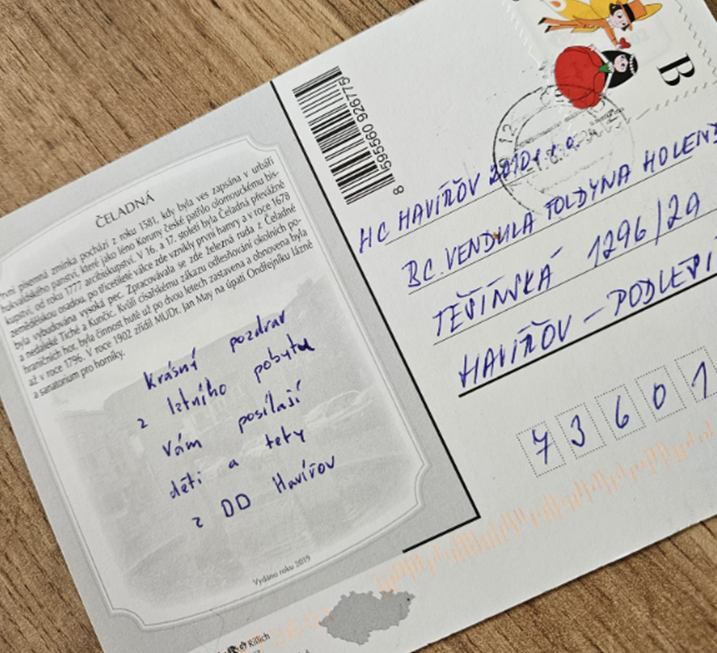 ČELADNÁ
První písemná zmínka pochází z roku 1581, kdy byla ves zapsána v urbáři
hukvaldského panství, které jako léno Koruny české patřilo olomouckému bis-
kupství, od roku 1777 arcibiskupství. V 16. a 17. století byla Čeladná převážně
zemědělskou osadou, po třicetileté válce zde vznikly první hamry a v roce 1678
byla vybudována vysoká pec. Zpracovávala se zde železná ruda z Čeladné
a nedaleké Tiché a Kunčic. Kvůli císařskému zákazu odlesňování okolních po-
hraničních hor, byla činnost hutě už po dvou letech zastavena a obnovena byla
až v roce 1796. V roce 1902 zřídil MUDr. Jan May na úpatí Ondřejníku lázně
a sanatorium pro horníky.
Krásný pozdrav
z letního pobytu
Vám posílají
děti a tety
z DD Havířov
Vydáno roku 2019
Rillich
8 595560 926775
B
HC HAVÍŘOV 2010
BC. VENDULA TOLDYNA HOLEN
TĚŠÍNSKÁ 1296/29
HAVÍŘOV – PODLESÍ
73601